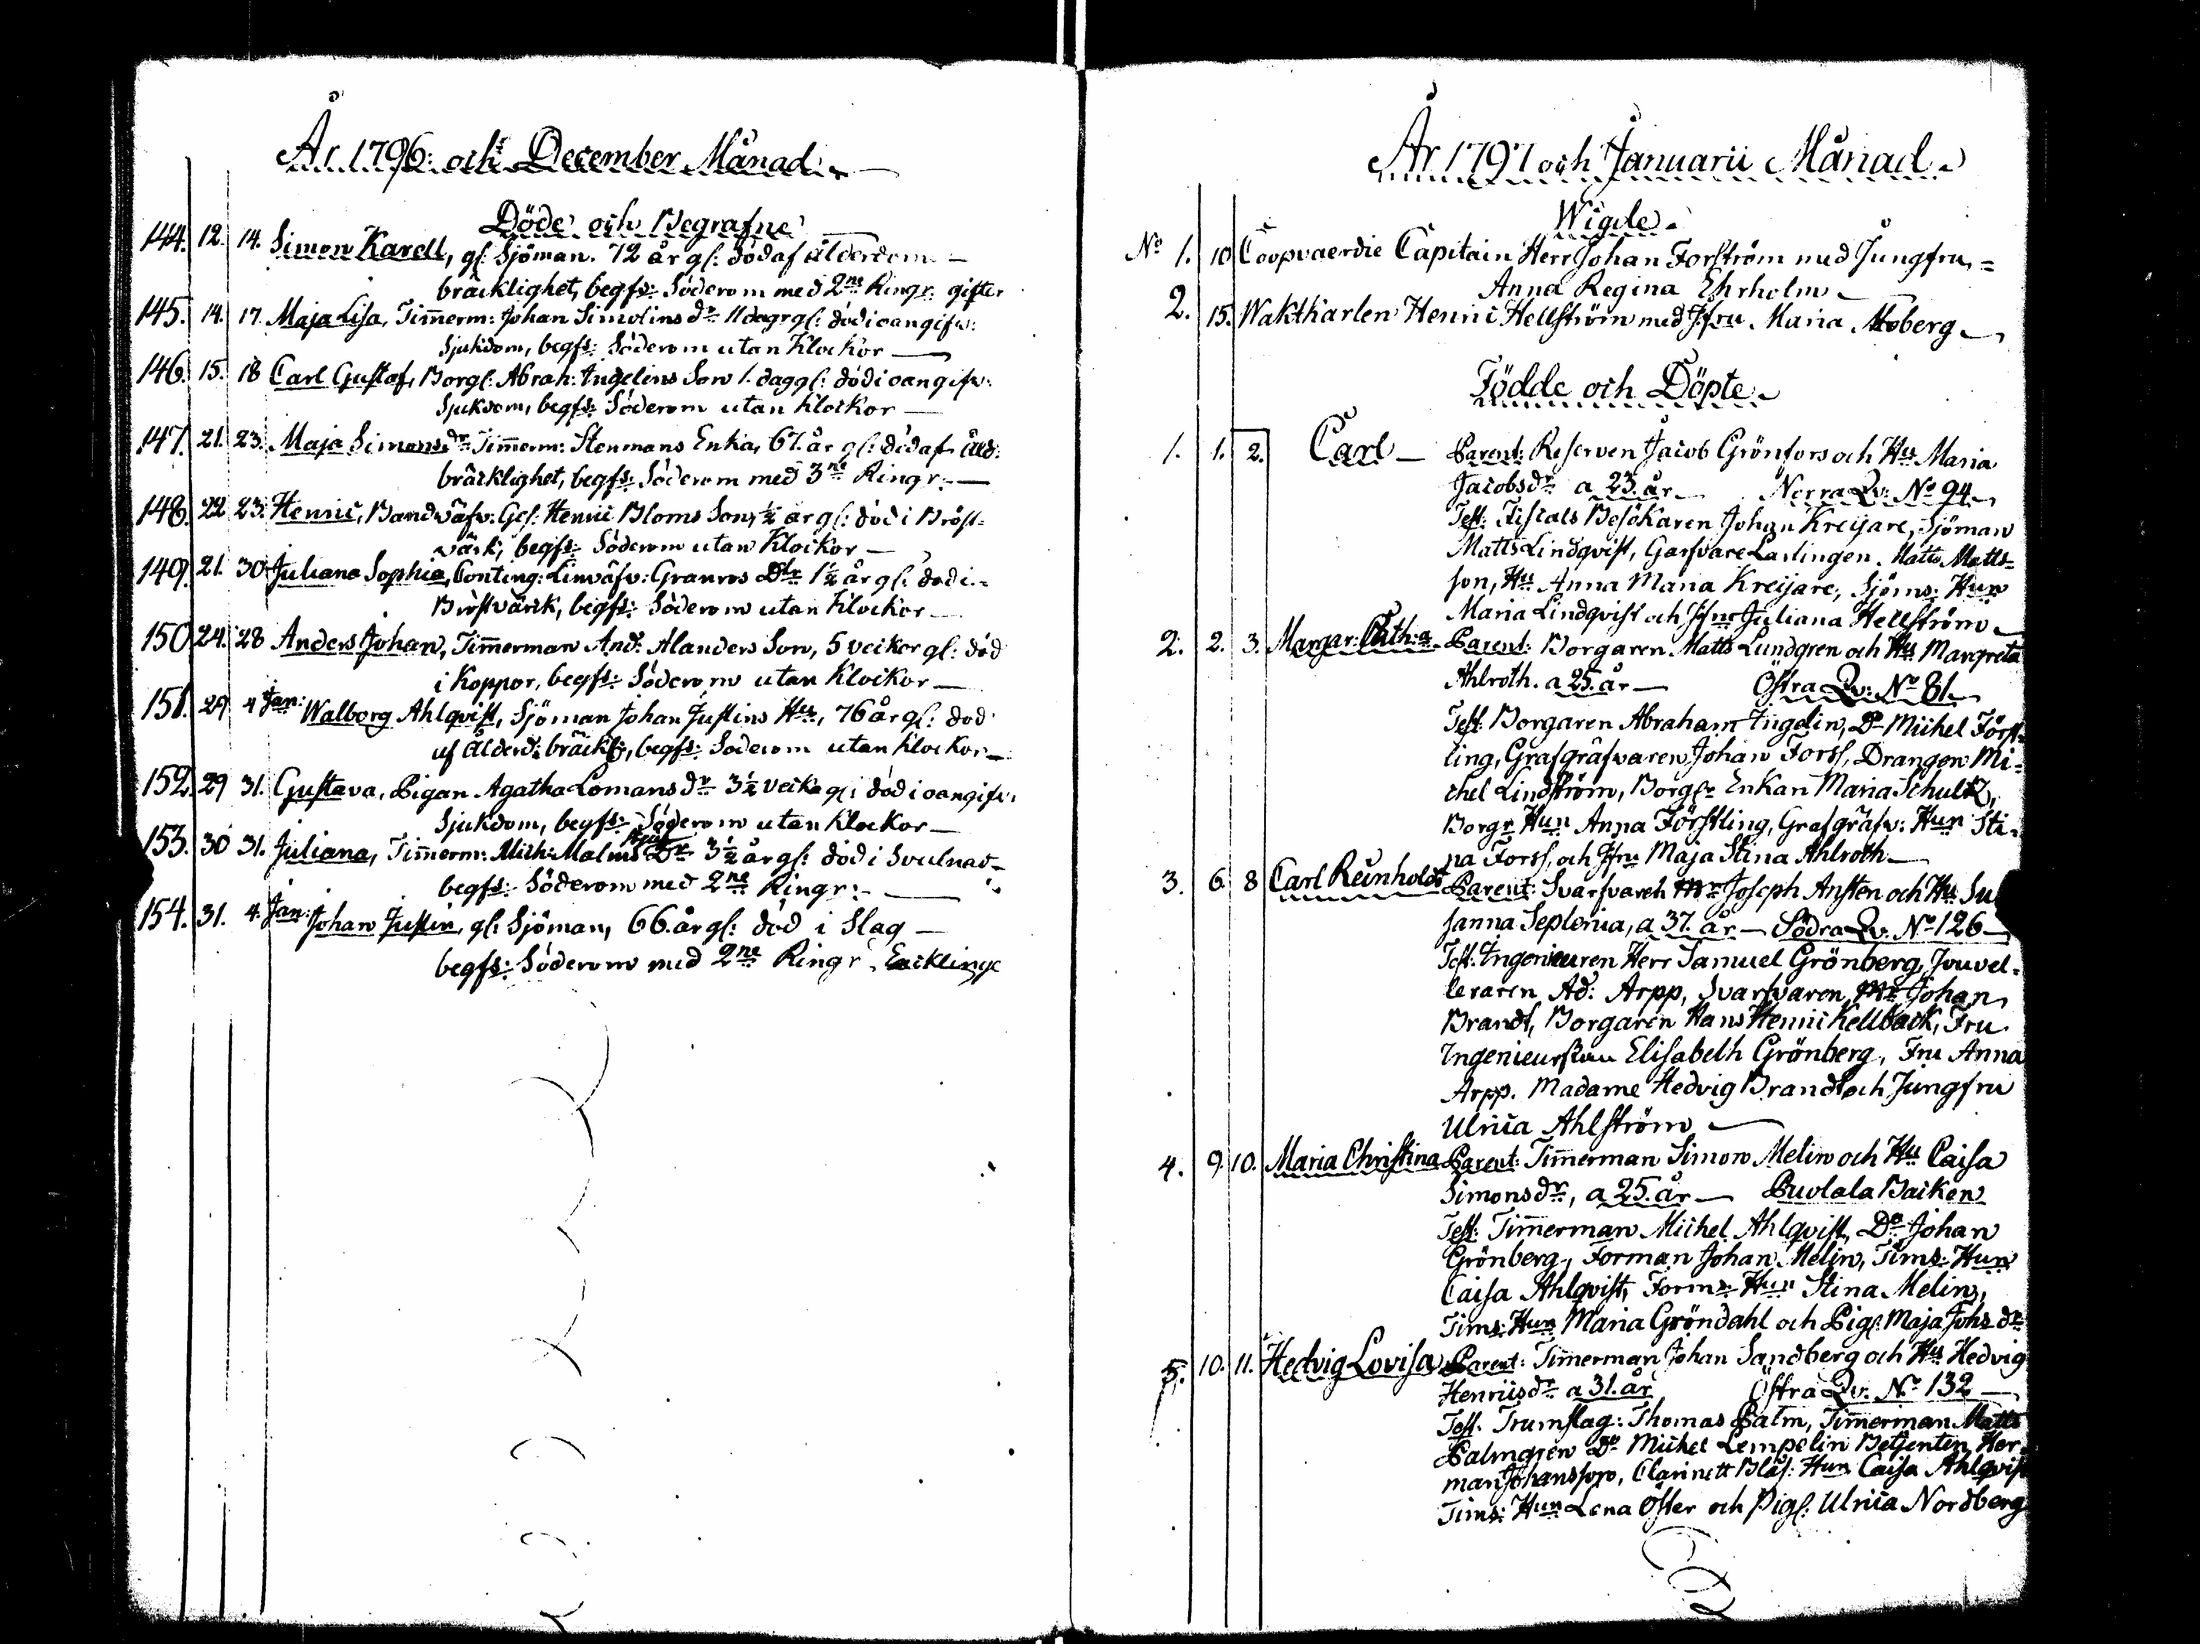 År 1796. och December Månad.
Döde och Begrafne
144. 12. 14. Simon Karell, gl: Sjöman. 72 år gl: död af ålderdoms
bräcklighet, begfs: Söderom med 2ne Ringr: gifter
145. 14. 17. Maja Lisa, Tim̄erm: Johan Simolins dr 11 dagr gl: död i oangifv:
Sjukdom, begfs: Söderom utan Klockor —
146. 15. 18 Carl Gustaf, Borgl: Abrah: Ingelins Son 1. dag gl: död i oangifv:
Sjukdom, begfs: Söderom utan Klockor —
147. 21. 23. Maja Simonsdr Tim̄erm: Stenmans Enka, 67. år gl: död af Åld:
bräcklighet, begfs: Söderom med 3ne Ringr: —
148. 22 23. Henric, Bandväfv: Ges: Henric Bloms Son, ½ år gl: död i Bröst-
värk, begfs: Söderom utan Klockor —
149. 21. 30 Juliana Sophia, Conting: Linväfv: Granros Dtr 1½ år gl: död i
Bröstvärk, begfs: Söderom utan Klockor —
150 24. 28 Anders Johan, Tim̄erman And: Alanders Son, 5 veckor gl: död
i Koppor, begfs: Söderom utan Klockor —
151. 29 4 Jan: Walborg Ahlqvist, Sjöman Johan Justins Hu, 76 år gl: död
af Ålderd: bräckl:, begfs: Söderom utan Klockor —
152. 29 31. Gustava, Pigan Agatha Lomans dr 3½ vecka gl: död i oangifv:
Sjukdom, begfs: Söderom utan Klockor —
153. 30 31. Juliana, Tim̄erm: Mich: Malms Dr 3½ år gl: död i Svulnad
begfs: Söderom med 2ne Ringr: —
154. 31. 4. Jan: Johan Justin, gl: Sjöman, 66. år gl: död i Slag —
begfs: Söderom med 2ne Ringr
År 1797 och Januarii Månad
Wigde
No 1. 10 Coopvaerdie Capitain Herr Johan Forström med Jungfru
Anna Regina Ehrholm
2. 15. Waktkarlen Henric Hellström med Jfru Maria Moberg
Födde och Döpte
1. 1. 2. Carl — Parent: Reserven Jacob Grönfors och Hu Maria
Jacobsdr a 23. år — Norra Qv: No 94
Test: Fiscals Besökaren Johan Kreijare, Sjöman
Matts Lindqvist, Garfvare Lärlingen Matts Matts-
son, Hu Anna Maria Kreijare, Sjöms: Hun
Maria Lindqvist och Jfru Juliana Hellström
2. 2. 3. Margar: Cath:a Parent: Borgaren Matts Lundgren och Hu Margreta
Ahlroth. a 25. år — Östra Qv: No 81.
Test: Borgaren Abraham Ingelin, Do Michel Först-
ling, Grafgräfvaren Johan Forss, Drangen Mi-
chel Lindström, Borgls Enkan Maria Schultz,
Borgr Hun Anna Förstling, Grafgräfv: Hun Sti-
na Forss, och Jfru Maja Stina Ahlroth —
3. 6. 8 Carl Reinholdt Parent: Svarfvaren Mr Joseph Ansten och Hu Su
sanna Seplenia, a 37. år — Södra Qv: No 126 —
Test: Ingenieuren Herr Samuel Grönberg, Jouvel-
leraren Ad: Arpp, Svarfvaren Mr Johan
Brandt, Borgaren Hans Henric Kellback, Fru
Ingenieurskan Elisabeth Grönberg, Fru Anna
Arpp. Madame Hedvig Brandt och Jungfru
Ulrica Ahlström —
4. 9. 10. Maria Christina Parent: Tim̄erman Simon Melin och Hu Caisa
Simonsdr, a 25. år — Puolala Backen
Test: Tim̄erman Michel Ahlqvist, Do Johan
Grönberg, Forman Johan Melin, Tims: Hun
Caisa Ahlqvist, Forms: Hun Stina Melin,
Tims: Hun Maria Gröndahl och Pigl: Maja Johsdr
5. 10. 11. Hedvig Lovisa Parent: Tim̄erman Johan Sandberg och Hu Hedvig
Henricsdr a 31. år Östra Qv: No 132 —
Test: Trumslag: Thomas Palm, Tim̄erman Matts
Palmgren Do Michel Lempelin Betjenten Her-
man Johansson, Clarinett Blås: Hun Caisa Ahlqvist
Tims: Hun Lena Öster och Pigl: Ulrica Nordberg